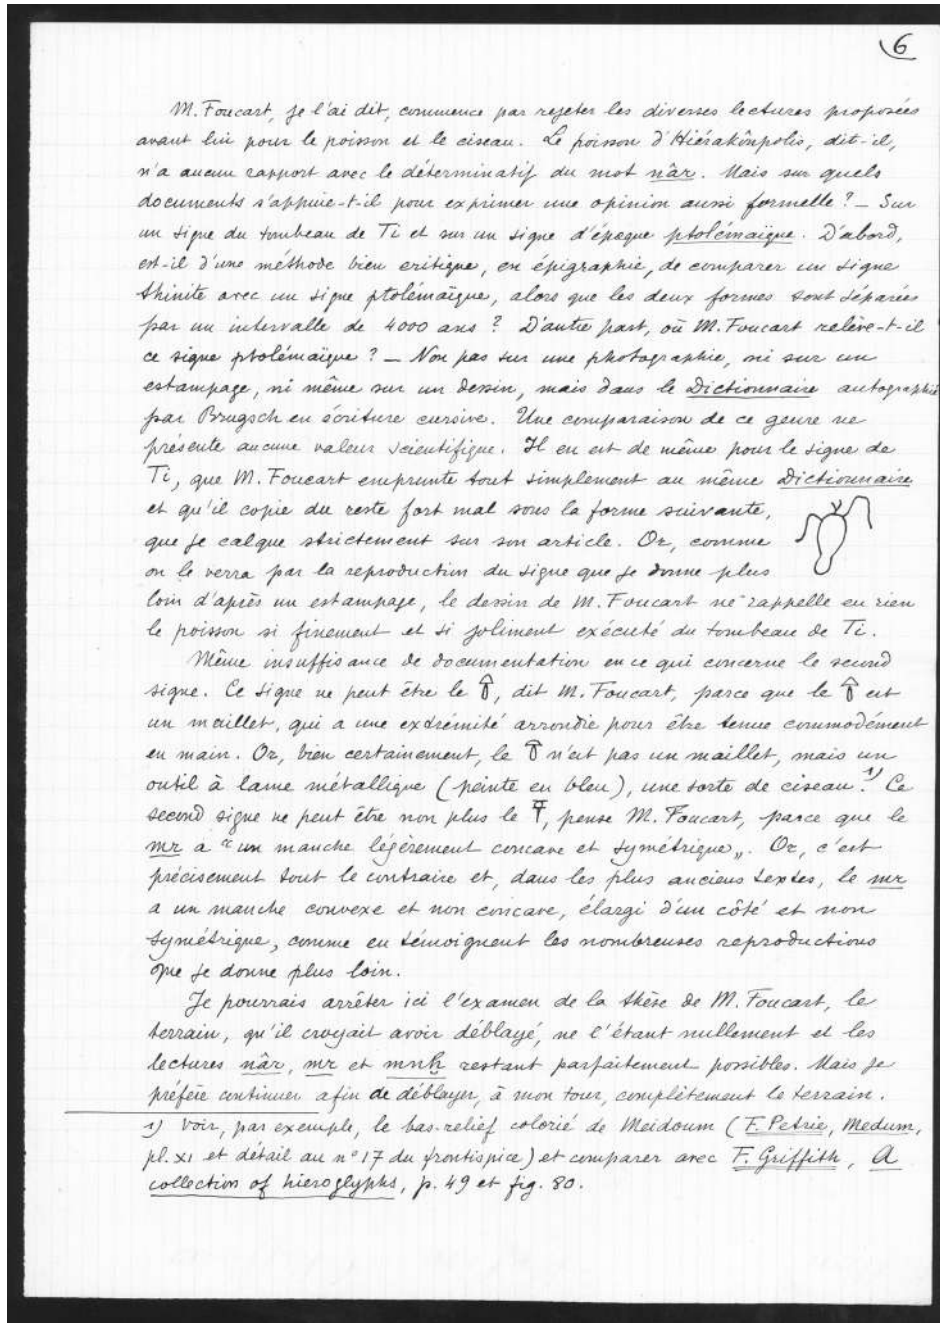 6
M. Foucart, je l'ai dit, commence par rejeter les diverses lectures proposées
avant lui pour le poisson et le ciseau. Le poisson d'Hiérakônpolis, dit-il,
n'a aucun rapport avec le déterminatif du mot nâr. Mais sur quels
documents s'appuie-t-il pour exprimer une opinion aussi formelle? — Sur
un signe du tombeau de Ti et sur un signe d'époque ptolémaïque. D'abord,
est-il d'une méthode bien critique, en épigraphie, de comparer un signe
thinite avec un signe ptolémaïque, alors que les deux formes sont séparées
par un intervalle de 4000 ans? D'autre part, où M. Foucart relève-t-il
ce signe ptolémaïque? — Non pas sur une photographie, ni sur un
estampage, ni même sur un dessin, mais dans le Dictionnaire autographié
par Brugsch en écriture cursive. Une comparaison de ce genre ne
présente aucune valeur scientifique. Il en est de même pour le signe de
Ti, que M. Foucart emprunte tout simplement au même Dictionnaire
et qu'il copie du reste fort mal sous la forme suivante,
que je calque strictement sur son article. Or, comme
on le verra par la reproduction du signe que je donne plus
loin d'après un estampage, le dessin de M. Foucart ne rappelle en rien
le poisson si finement et si joliment exécuté du tombeau de Ti.
Même insuffisance de documentation en ce qui concerne le second
signe. Ce signe ne peut être le , dit M. Foucart, parce que le est
un maillet, qui a une extrémité arrondie pour être tenue commodément
en main. Or, bien certainement, le n'est pas un maillet, mais un
outil à lame métallique (peinte en bleu), une sorte de ciseau.1) Ce
second signe ne peut être non plus le , pense M. Foucart, parce que le
mr a "un manche légèrement concave et symétrique„. Or, c'est
précisement tout le contraire et, dans les plus anciens textes, le mr
a un manche convexe et non concave, élargi d'un côté et non
symétrique, comme en témoignent les nombreuses reproductions
que je donne plus loin.
Je pourrais arrêter ici l'examen de la thèse de M. Foucart, le
terrain, qu'il croyait avoir déblayé, ne l'étant nullement et les
lectures nâr, mr et mnḫ restant parfaitement possibles. Mais je
préfère continuer afin de déblayer, à mon tour, complètement le terrain.
1) Voir, par exemple, le bas-relief colorié de Meidoum (F. Petrie, Medum,
pl. XI et détail au n° 17 du frontispice) et comparer avec F. Griffith, A
collection of hieroglyphs, p. 49 et fig. 80.